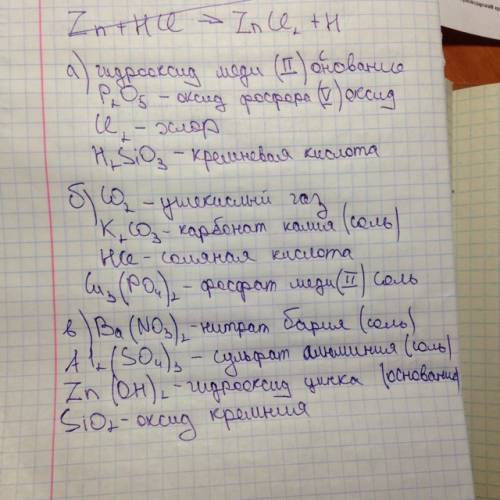 Zn + HCl → ZnCl₂ + H
а) гидрооксид меди (II) основание
P₂O₅ - оксид фосфора (V) оксид
Cl₂ - хлор
H₂SiO₃ - кремневая кислота
б) CO₂ - углекислый газ
K₂CO₃ - карбонат калия (соль)
HCl - соляная кислота
Cu₃(PO₄)₂ - фосфат меди (II) соль
в) Ba(NO₃)₂ - нитрат бария (соль)
Al₂(SO₄)₃ - сульфат алюминия (соль)
Zn(OH)₂ - гидрооксид цинка (основание)
SiO₂ - оксид кремния